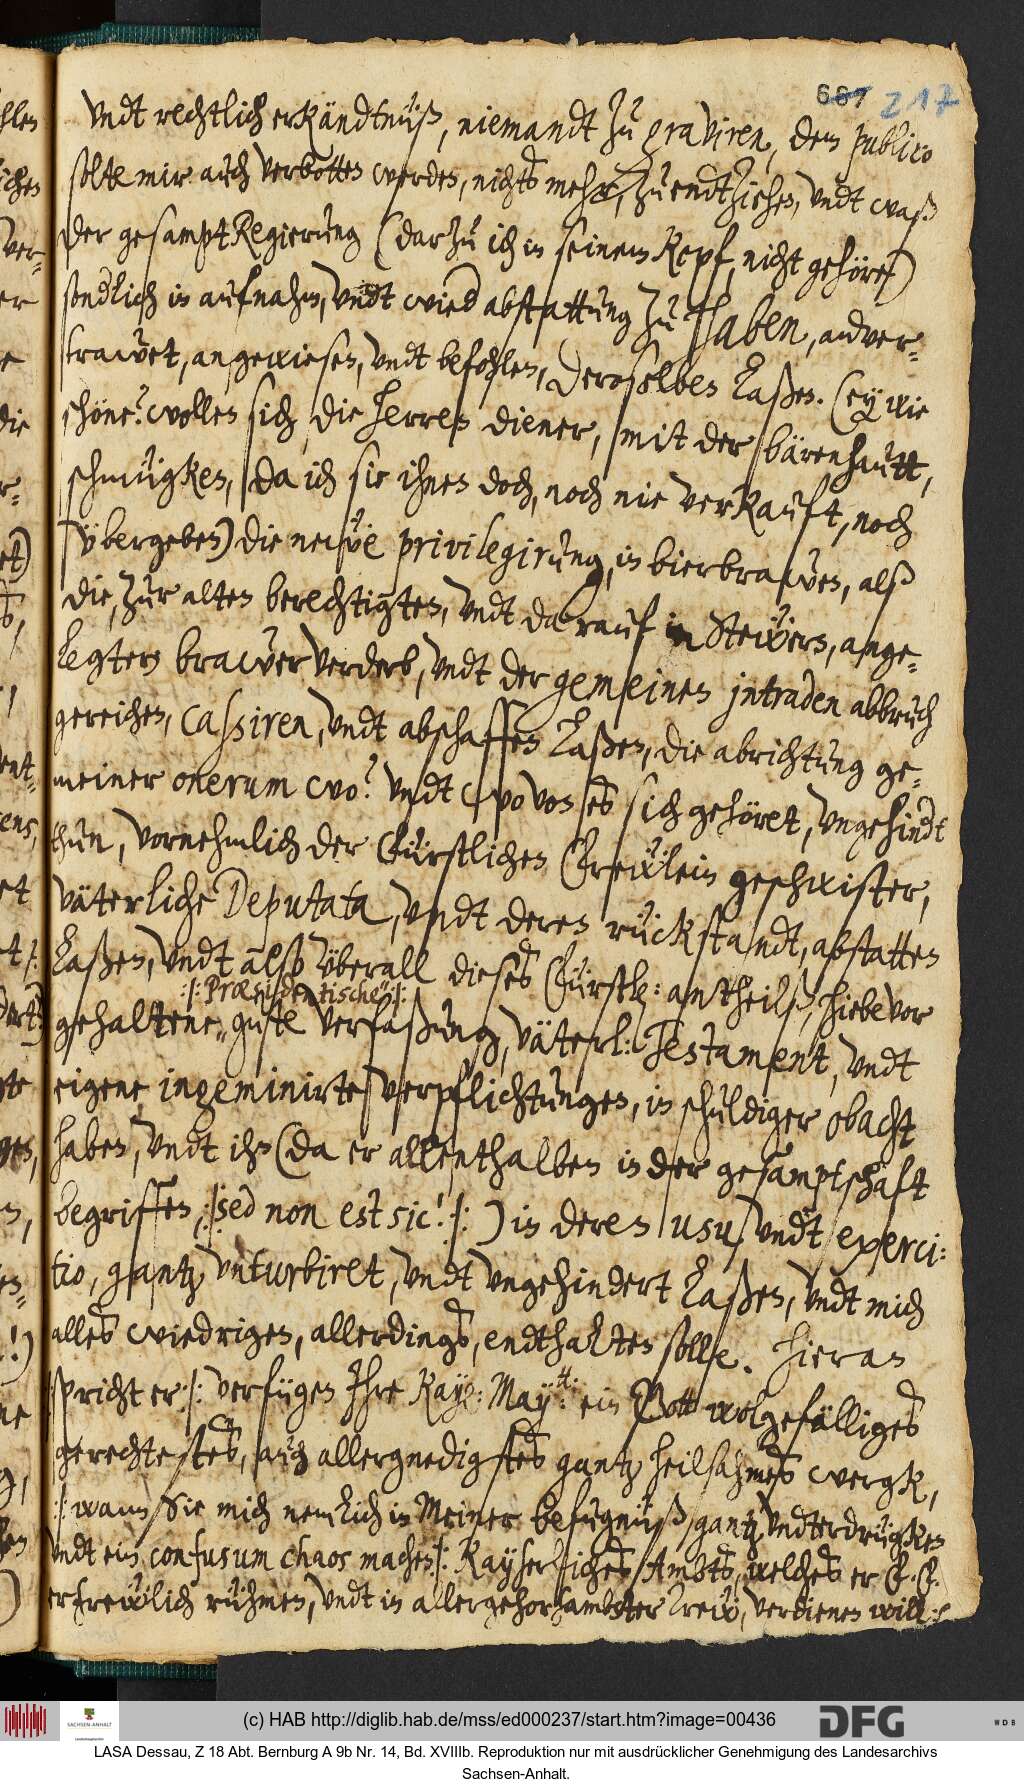 667 217
Vndt rechtlich erkändtnüß, niemandt zu graviren, dem publico
solte mir auch verbotten werden, nichts mehr, zu endtziehen, vndt waß
der gesampt Regierung (darzu ich in seinem Kopf, nicht gehöre)
sondlich in aufnahm, vndt wied abstattung zu haben, andver-
trawet, angewiesen, vndt befohlen, deroselben laßen. (ey wie
schöne? wollen sich, die Herren diener, mit der bärenhautt,
schmügken, da ich sie ihnen doch, noch nie verkauft, noch
übergeben) die neẅe privilegirung, in bierbrawen, alß
die, zur alten berechtigten, vndt darauf in Steẅern, ange-
legten brawer verderb, vndt der gemeinen jntraden abbruch
gereichen, cassiren, vndt abschaffen laßen, die abrichtung ge-
meiner onerum wo? vndt wovon es sich gehöret, vngehindt
thun, vornehmlich der Fürstlichen Freẅlein geschwister,
väterliche Deputata, vndt deren rückstandt, abstatten
laßen, vndt alß überall dieses Fürstl: antheilß, hiebevor
:/: Præsidentische :/:
gehaltene, guhte verfaßung, väterl: Testament, vndt
eigene ingeminirte verpflichtungen, in schuldiger obacht
haben, vndt ihn (da er allenthalben in der gesamptschaft
begriffen, :/: sed non est sic! :/: ) in deren usu, vndt exerci:
tio, gantz vnturbiret, vndt vngehindert laßen, vndt mich
alles wiedrigen, allerdings, endthalten solle. Hieran
spricht er :/: verfügen Ihre Kayß: May:tt: ein Gott wolgefälliges
gerechtestes, auch allergnedigstes gantz heilsahmes wergk,
:/: wann Sie mich nemlich in Meiner befugnüß, gantz vndterdrügken
vndt ein confusum chaos machen :/: Kayserliches Ambts, welches er E. E.
erfreẅlich rühmen, vndt in allergehorsambster treẅ, verdienen will :/:
(c) HAB http://diglib.hab.de/mss/ed000237/start.htm?image=00436
SACHSEN-ANHALT
DFG
WDB
LASA Dessau, Z 18 Abt. Bernburg A 9b Nr. 14, Bd. XVIIIb. Reproduktion nur mit ausdrücklicher Genehmigung des Landesarchivs
Sachsen-Anhalt.